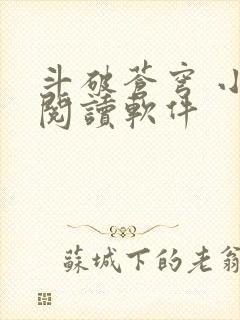 斗破蒼穹 小
閱讀軟件
蘇城下的老翁